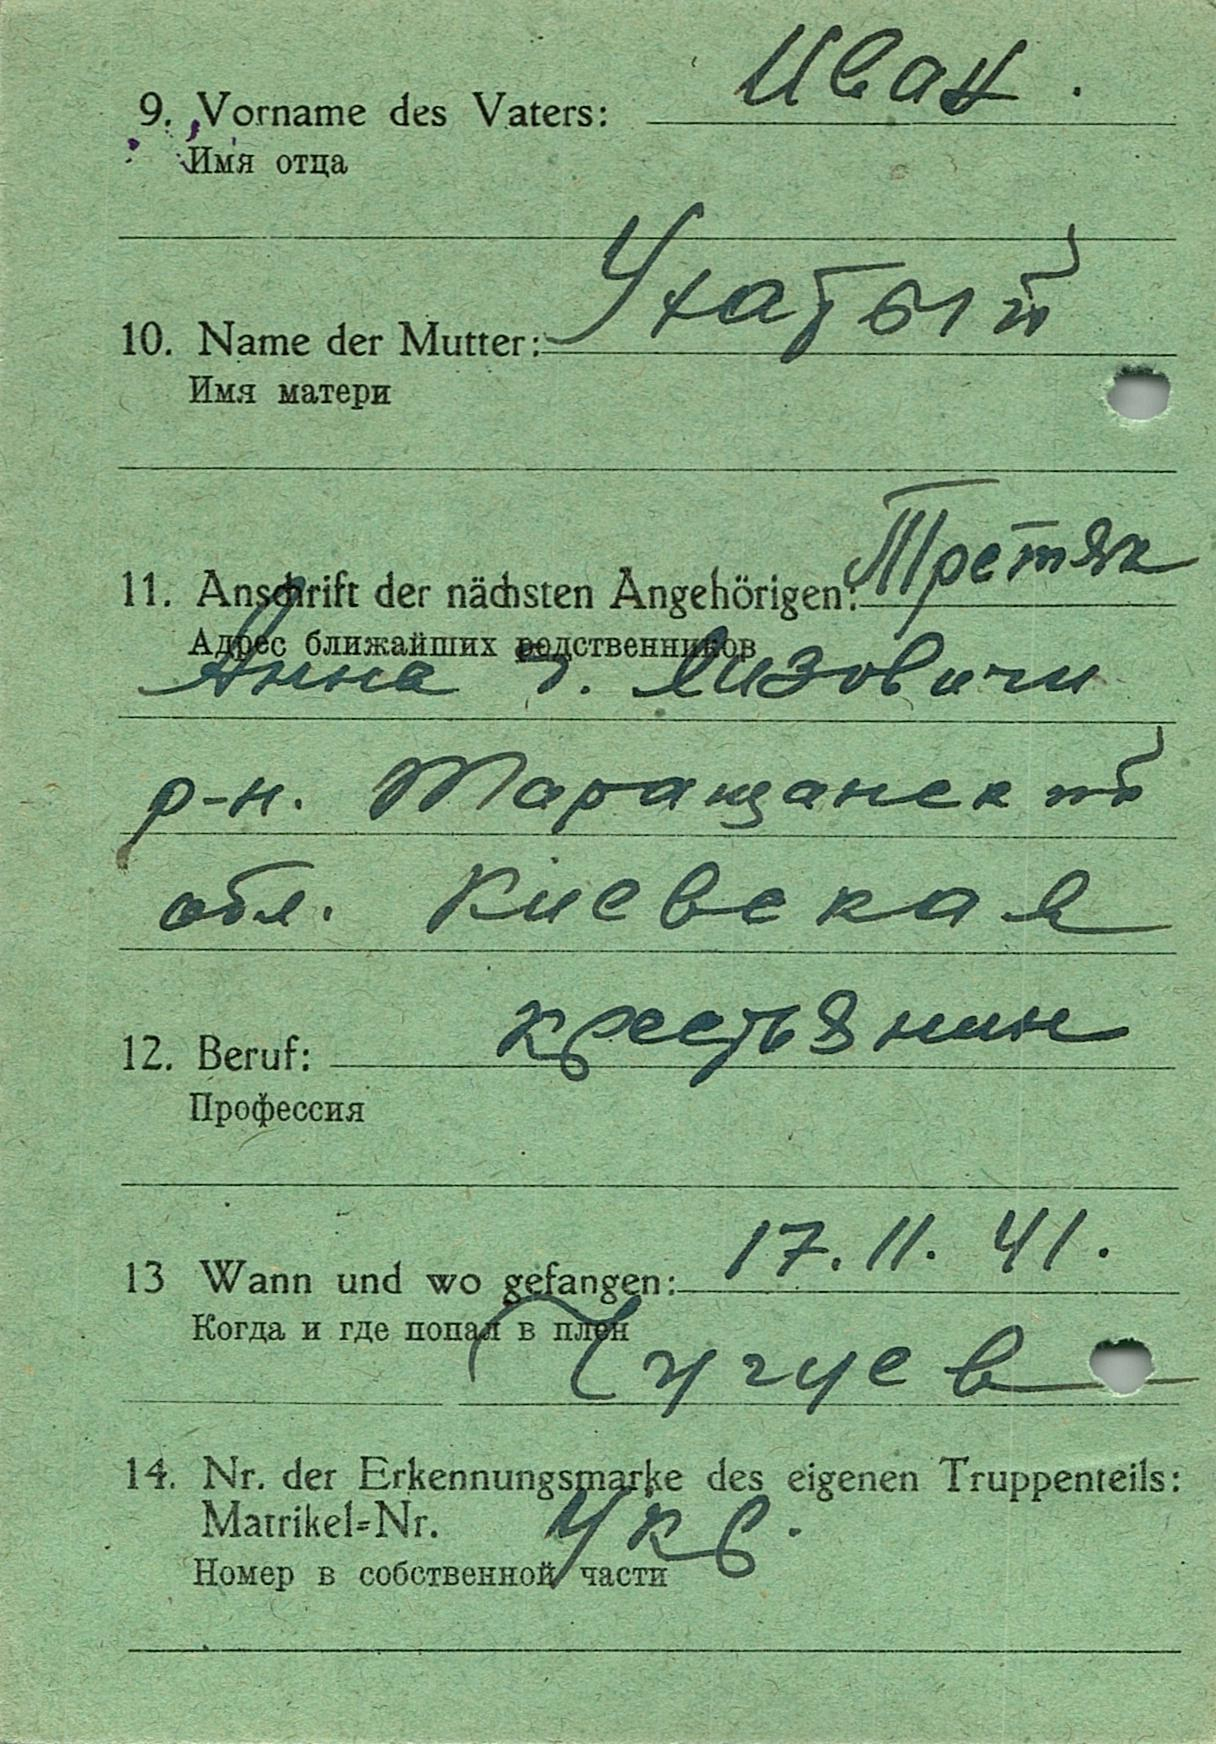 9. Vorname des Vaters: Иван.
Имя отца
10. Name der Mutter: Ухатый
Имя матери
11. Anschrift der nächsten Angehörigen: Третяк
Адрес ближайших родственников
Анна с. Лизовичи
р-н. Таращанский
обл. Киевская
12. Beruf: крестьянин
Профессия
13 Wann und wo gefangen: 17.11.41.
Когда и где попал в плен
Чугуев
14. Nr. der Erkennungsmarke des eigenen Truppenteils:
Matrikel=Nr. Укр.
Номер в собственной части